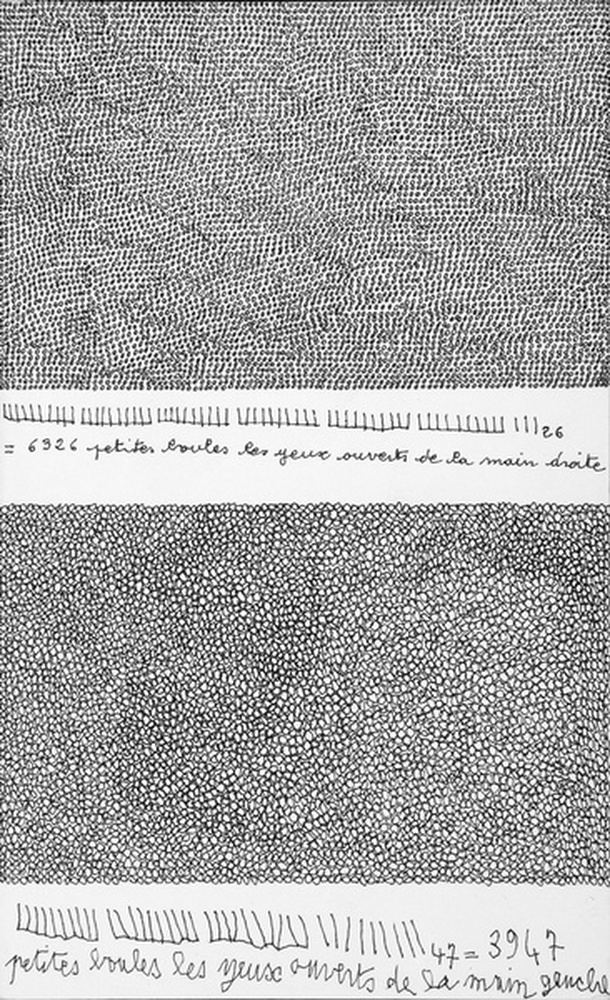 26
= 6326 petites boules les yeux ouverts de la main droite
47 = 3947
petites boules les yeux ouverts de la main gauche